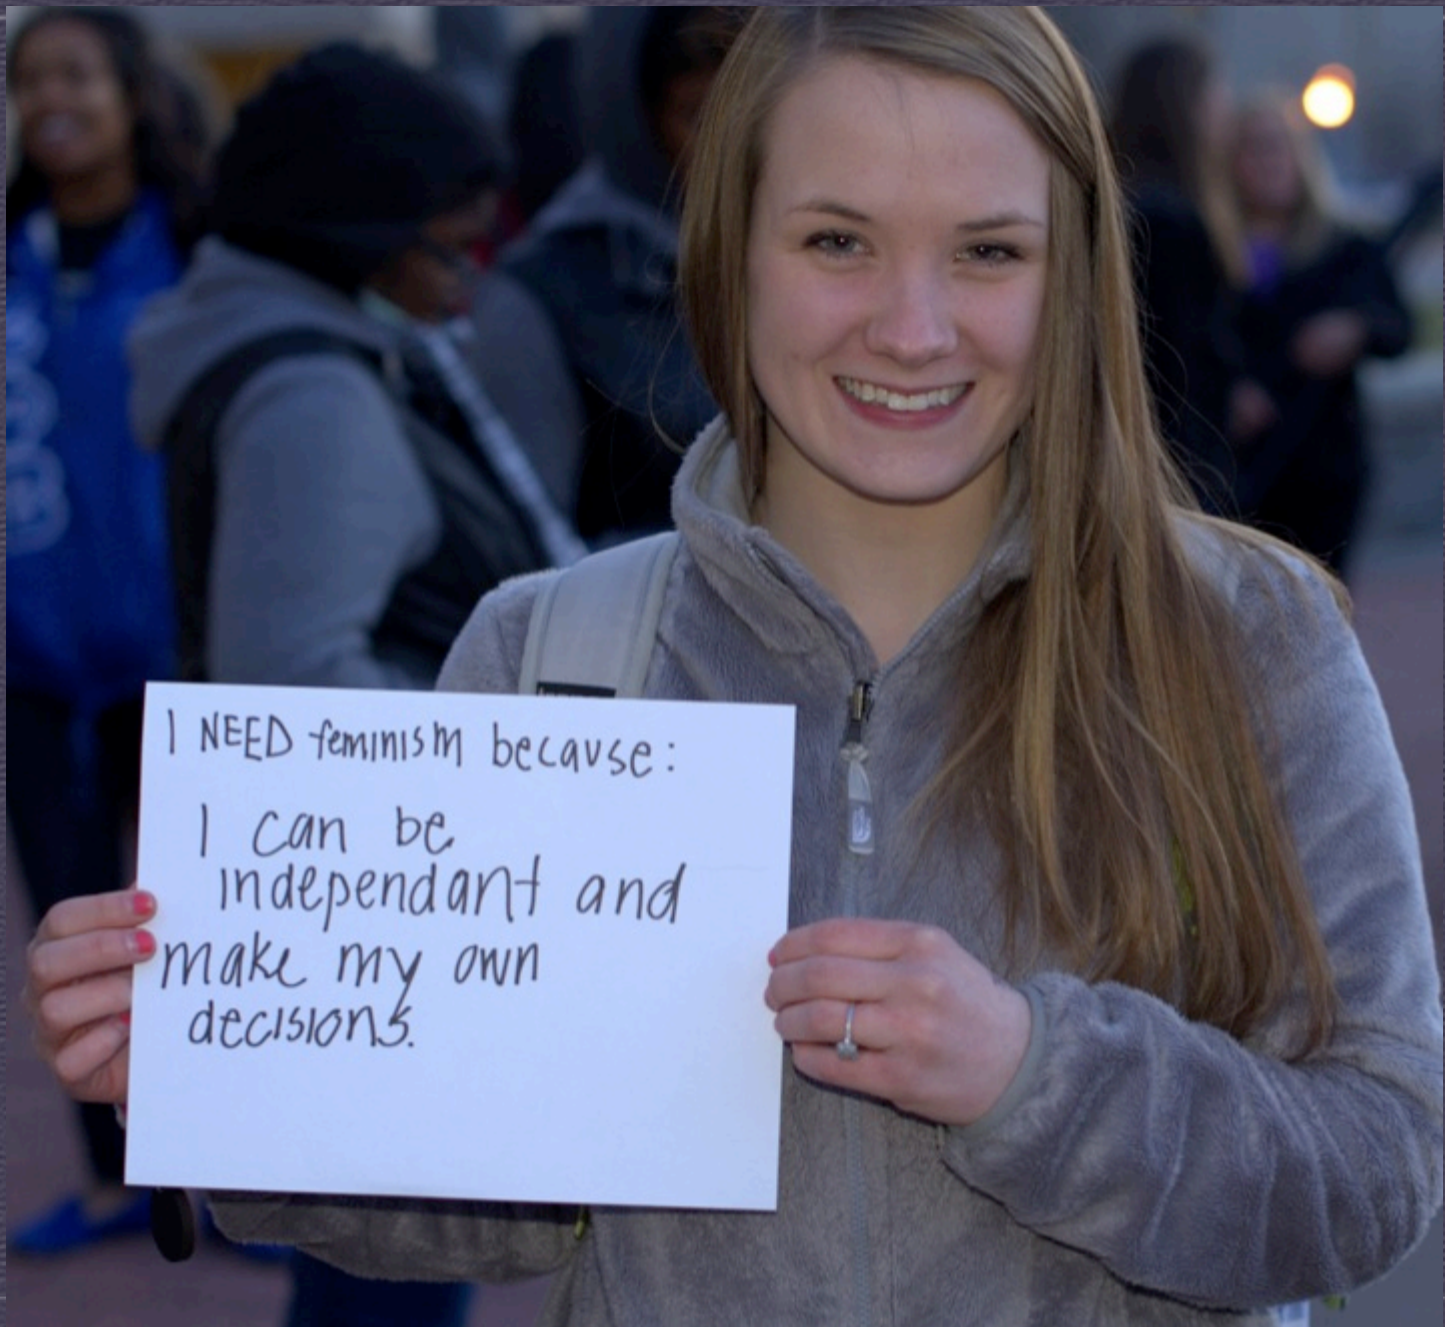 I NEED feminism because:
I can be
independant and
make my own
decisions.